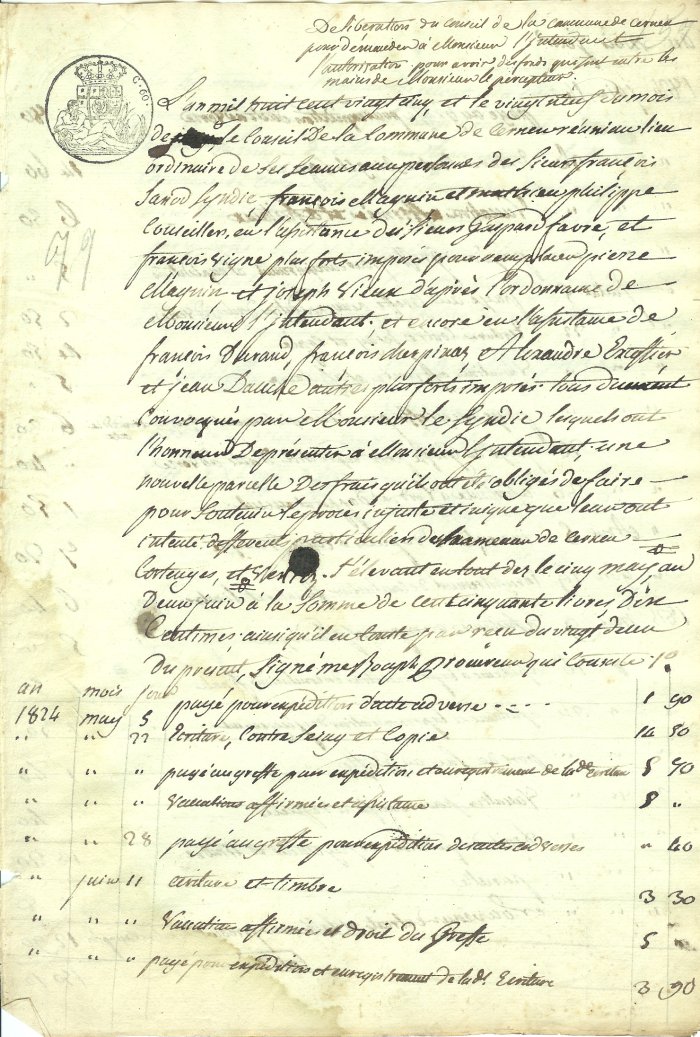 Deliberation du Conseil de la commune de cernex
pour demander à Monsieur l'Intendant
l'autorisation pour avoir des fonds qui sont entre les
mains de Monsieur le percepteur.
C. 60.
L'an mil huit cent vingt cinq et le vingt neuf du mois
de le Conseil De la Commune de Cernex réuni au lieu
ordinaire de ses seances aux personnes des Sieurs françois
Syndic françois Magnin et mathieu philippe
Conseillers, en l'assistance des sieurs Gaspard favre, et
françois vigne plus forts imposés pour remplacer pierre
Magnin et joseph Vieux d'après l'ordonnance de
Monsieur l'Intendant. et encore en l'assistance de
françois Durand, françois et Alexandre Excoffier
et jean autres plus forts imposés tous dument
Convoqués par Monsieur le Syndic lesquels ont
l'honneur De présenter à Monsieur l'Intendant, une
nouvelle parcelle Des frais qu'il ont été obligés de faire
pour Soutenir le procès injuste et inique que leur ont
intenté differents particuliers du hameau de Cernex
et S'élevant en tout dez le cinq may, au
Deux juin à la Somme de cent cinquante livres Dix
Centimes ainsi qu'il en Conste par recu du vingt deux
Du présent, Signé me Joseph qui Consiste : 1º
an mois jour
1824 may 5 payé pour expédition d'acte adverse 1 90
" " 22 Ecriture, Contre Seing et Copie 14 50
" " " payé au greffe pour expédition et enregistrement de lade Ecriture 8 70
" " " Vaccations affirmées et assistance 8 "
" " 28 payé au greffe pour expédition des actes adverses " 40
" juin 11 ecriture et timbre 3 30
" " " Vaccation affirmées et droit du Greffe 5 "
" " " payé pour expédition et enregistrement de lade. Ecriture 3 90